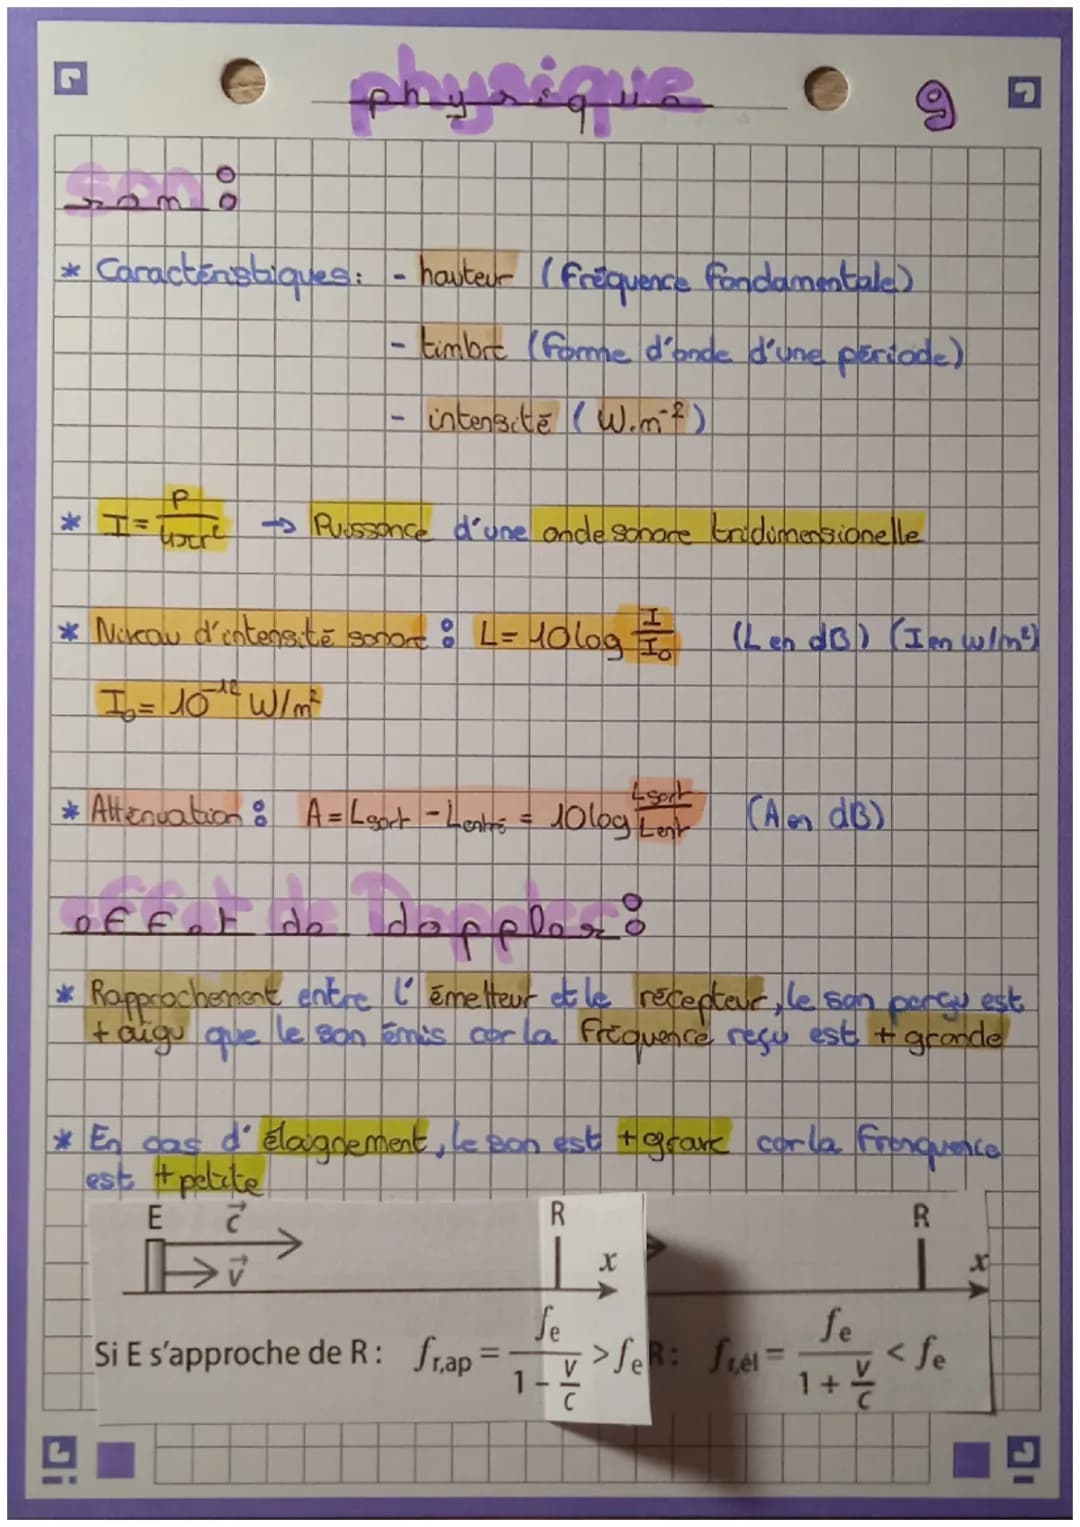 physique
9
son :
* Caractéristiques : - hauteur (fréquence fondamentale)
- timbre (forme d'onde d'une période)
- intensité (W.m⁻²)
* I = P / 4πr² → Puissance d'une onde sonore tridimensionelle
* Niveau d'intensité sonore : L = 10 log I / I₀ (L en dB) (I en W/m²)
I₀ = 10⁻¹² W/m²
* Atténuation : A = Lsort - Lentré = 10 log Lsort / Lent (A en dB)
effet de doppler :
* Rapprochement entre l'émetteur et le récepteur, le son perçu est
+ aigu que le son émis car la fréquence reçu est + grande
* En cas d'élaignement, le son est + grave car la frenquence
est + petite
E c⃗ v⃗ R x R x
Si E s'approche de R : fr,ap = fe / (1 - v/c) > fe R : fr,él = fe / (1 + v/c) < fe